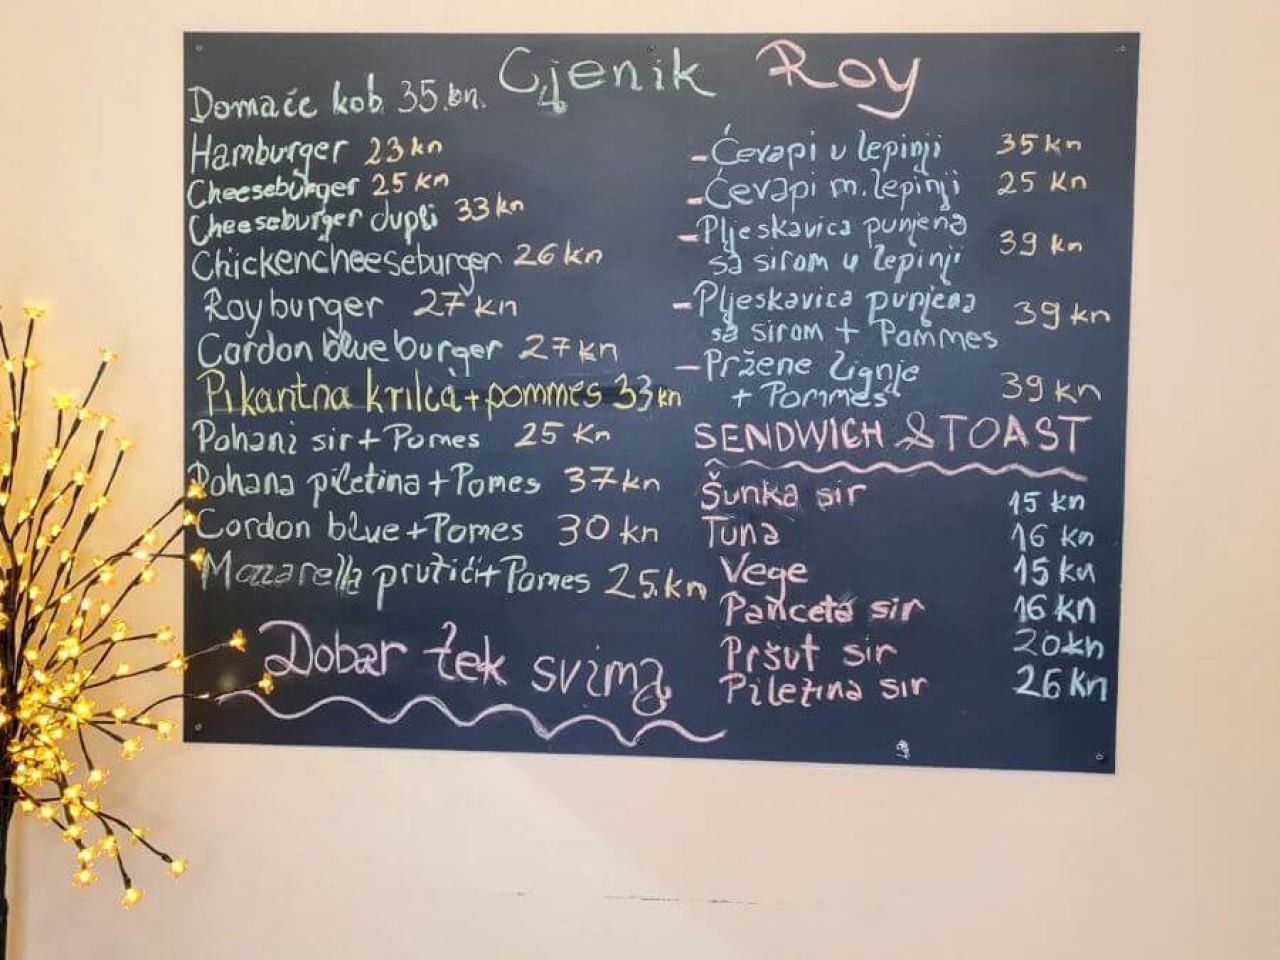 Cjenik Roy
Domaće kob 35.kn.
Hamburger 23 kn
Cheeseburger 25 kn
Cheeseburger dupli 33 kn
Chickencheeseburger 26 kn
Royburger 27 kn
Cordon blue burger 27 kn
Pikantna krilca + pommes 33 kn
Pohani sir + Pomes 25 Kn
Pohana piletina + Pomes 37 kn
Cordon blue + Pomes 30 kn
Mozzarella prutići + Pomes 25.kn
Dobar tek svima
- Ćevapi u lepinji 35 kn
- Ćevapi m. lepinji 25 Kn
- Pljeskavica punjena
sa sirom u lepinji 39 kn
- Pljeskavica punjena
sa sirom + Pommes 39 kn
- Pržene lignje
+ Pommes 39 kn
SENDWICH & TOAST
Šunka sir 15 kn
Tuna 16 kn
Vege 15 kn
Panceta sir 16 kn
Pršut sir 20 kn
Piletina sir 26 Kn